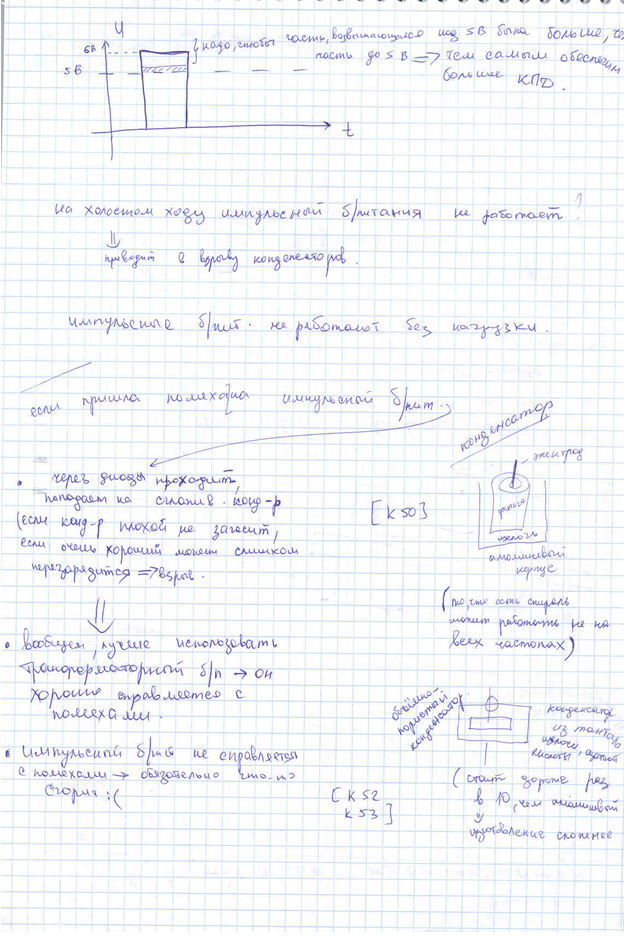 U
6В
5В
t
надо, чтобы часть, возвышающаяся над 5В была больше, че
часть до 5В => тем самым обеспечим
больше КПД.
на холостом ходу импульсный б/питания не работает!
приводит к взрыву конденсаторов.
импульсные б/пит. не работают без нагрузки.
если пришла помеха на импульсный б/пит.
• через диоды проходит,
попадает на сглажив. конд-р
(если конд-р плохой не загасит,
если очень хороший может слишком
перезарядится => взрыв.
• вообщем, лучше использовать
трансформаторный б/п → он
хорошо справляется с
помехами.
• импульсный б/пит не справляется
с помехами → обязательно что-то
сгорит :(
конденсатор
электрод
фольга
щелочь
алюминиевый
корпус
[К50]
(то, что есть спираль
может работать не на
всех частотах)
объёмно-
пористый
конденсатор
конденсатор
из тантала
щелочи, азотной
кислоты
(стоит дороже раз
в 10, чем алюминиевый
изготовление сложнее
[К52
К53]